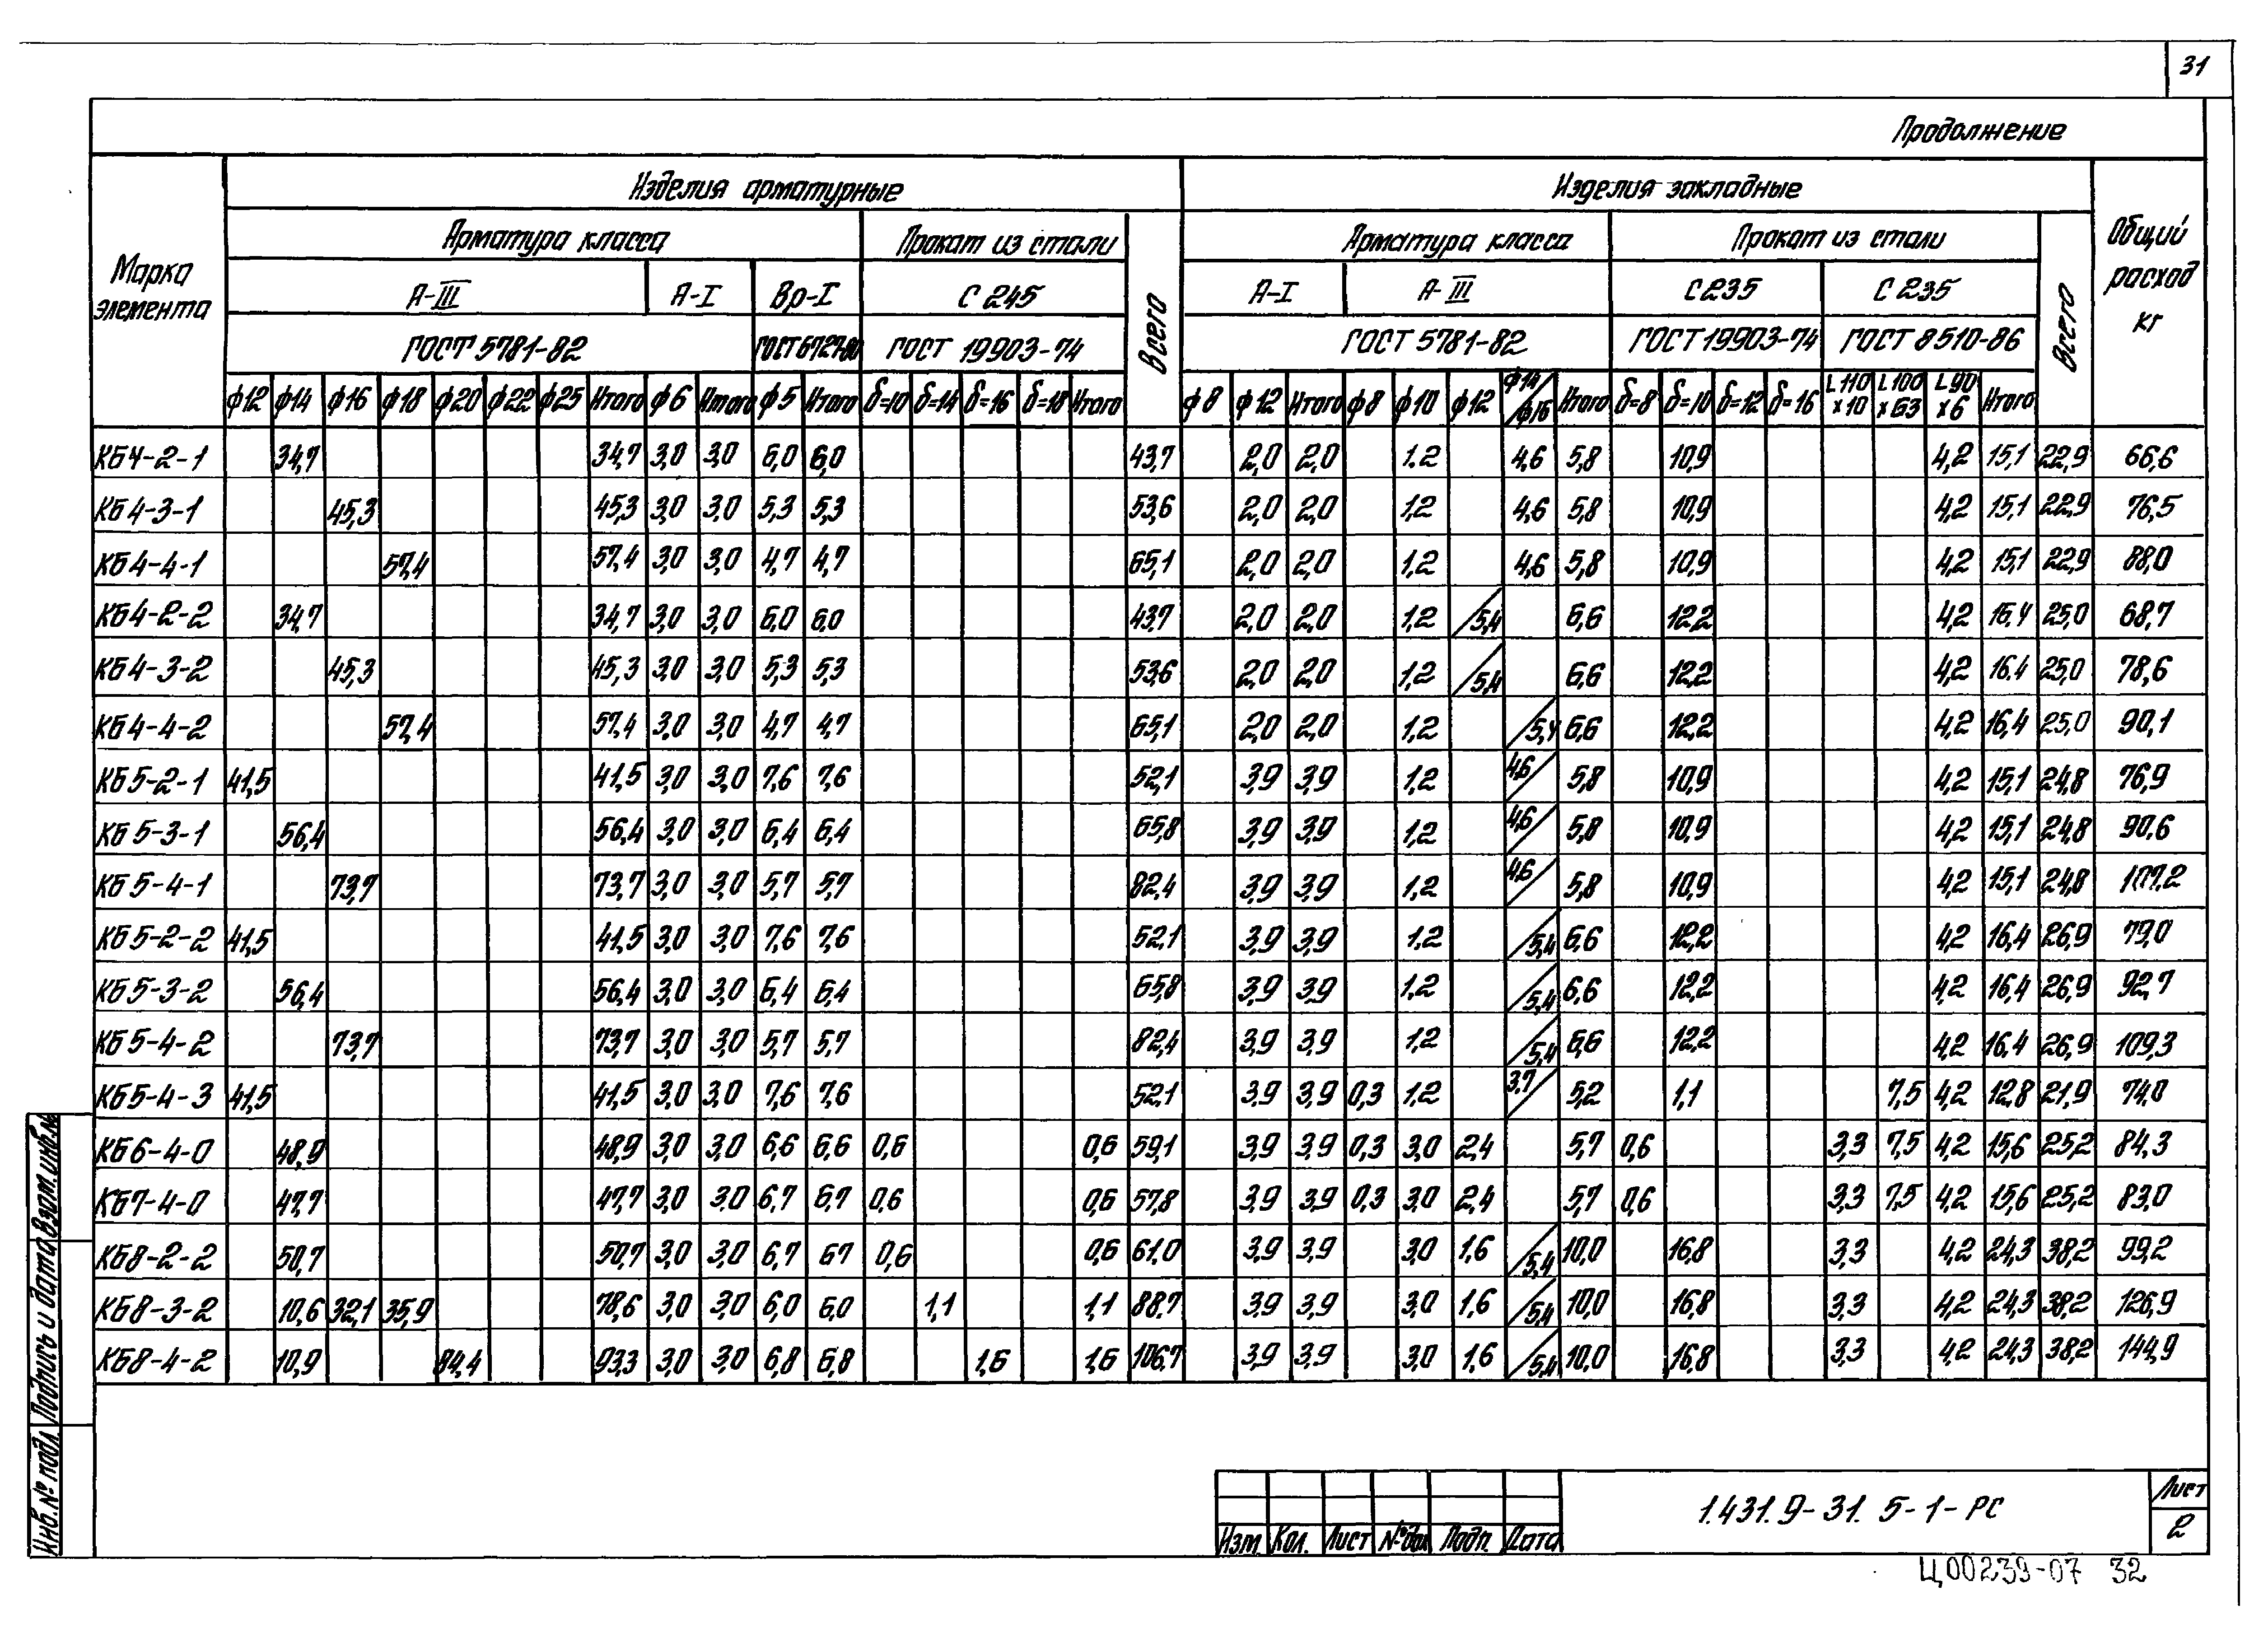 31
Продолжение
Марка элемента
Изделия арматурные
Изделия закладные
Общий расход кг
Арматура класса
Прокат из стали
Всего
Арматура класса
Прокат из стали
Всего
А-III
А-I
Вр-I
С 245
А-I
А-III
С235
С 235
ГОСТ 5781-82
ГОСТ 6727-80
ГОСТ 19903-74
ГОСТ 5781-82
ГОСТ 19903-74
ГОСТ 8510-86
ф12 ф14 ф16 ф18 ф20 ф22 ф25 Итого ф6 Итого ф5 Итого δ=10 δ=14 δ=16 δ=18 Итого ф8 ф12 Итого ф8 ф10 ф12 ф14/ф16 Итого δ=8 δ=10 δ=12 δ=16 L110 х10 L100 х63 L90 х6 Итого
КБ4-2-1 34,7 34,7 3,0 3,0 6,0 6,0 43,7 2,0 2,0 1.2 4,6 5,8 10,9 4,2 15,1 22,9 66,6
КБ4-3-1 45,3 45,3 3,0 3,0 5,3 5,3 53,6 2,0 2,0 1,2 4,6 5,8 10,9 4,2 15,1 22,9 76,5
КБ4-4-1 57,4 57,4 3,0 3,0 4,7 4,7 65,1 2,0 2,0 1,2 4,6 5,8 10,9 4,2 15,1 22,9 88,0
КБ4-2-2 34,7 34,7 3,0 3,0 6,0 6,0 43,7 2,0 2,0 1,2 /5,4 6,6 12,2 4,2 16,4 25,0 68,7
КБ4-3-2 45,3 45,3 3,0 3,0 5,3 5,3 53,6 2,0 2,0 1,2 /5,4 6,6 12,2 4,2 16,4 25,0 78,6
КБ4-4-2 57,4 57,4 3,0 3,0 4,7 4,7 65,1 2,0 2,0 1,2 /5,4 6,6 12,2 4,2 16,4 25,0 90,1
КБ5-2-1 41,5 41,5 3,0 3,0 7,6 7,6 52,1 3,9 3,9 1,2 4,6/ 5,8 10,9 4,2 15,1 24,8 76,9
КБ5-3-1 56,4 56,4 3,0 3,0 6,4 6,4 65,8 3,9 3,9 1,2 4,6/ 5,8 10,9 4,2 15,1 24,8 90,6
КБ5-4-1 73,7 73,7 3,0 3,0 5,7 5,7 82,4 3,9 3,9 1,2 4,6/ 5,8 10,9 4,2 15,1 24,8 107,2
КБ5-2-2 41,5 41,5 3,0 3,0 7,6 7,6 52,1 3,9 3,9 1,2 /5,4 6,6 12,2 4,2 16,4 26,9 79,0
КБ5-3-2 56,4 56,4 3,0 3,0 6,4 6,4 65,8 3,9 3,9 1,2 /5,4 6,6 12,2 4,2 16,4 26,9 92,7
КБ5-4-2 73,7 73,7 3,0 3,0 5,7 5,7 82,4 3,9 3,9 1,2 /5,4 6,6 12,2 4,2 16,4 26,9 109,3
КБ5-4-3 41,5 41,5 3,0 3,0 7,6 7,6 52,1 3,9 3,9 0,3 1,2 3,7/ 5,2 1,1 7,5 4,2 12,8 21,9 74,0
КБ6-4-0 48,9 48,9 3,0 3,0 6,6 6,6 0,6 0,6 59,1 3,9 3,9 0,3 3,0 2,4 5,7 0,6 3,3 7,5 4,2 15,6 25,2 84,3
КБ7-4-0 47,7 47,7 3,0 3,0 6,7 6,7 0,6 0,6 57,8 3,9 3,9 0,3 3,0 2,4 5,7 0,6 3,3 7,5 4,2 15,6 25,2 83,0
КБ8-2-2 50,7 50,7 3,0 3,0 6,7 6,7 0,6 0,6 61,0 3,9 3,9 3,0 1,6 /5,4 10,0 16,8 3,3 4,2 24,3 38,2 99,2
КБ8-3-2 10,6 32,1 35,9 78,6 3,0 3,0 6,0 6,0 1,1 1,1 88,7 3,9 3,9 3,0 1,6 /5,4 10,0 16,8 3,3 4,2 24,3 38,2 126,9
КБ8-4-2 10,9 84,4 93,3 3,0 3,0 6,8 6,8 1,6 1,6 106,7 3,9 3,9 3,0 1,6 /5,4 10,0 16,8 3,3 4,2 24,3 38,2 144,9
Инв.№ подл. Подпись и дата Взам.инв.№
Изм. Кол. Лист №док Подп. Дата
1.431.9-31. 5-1-РС
Лист
2
Ц00239-07 32